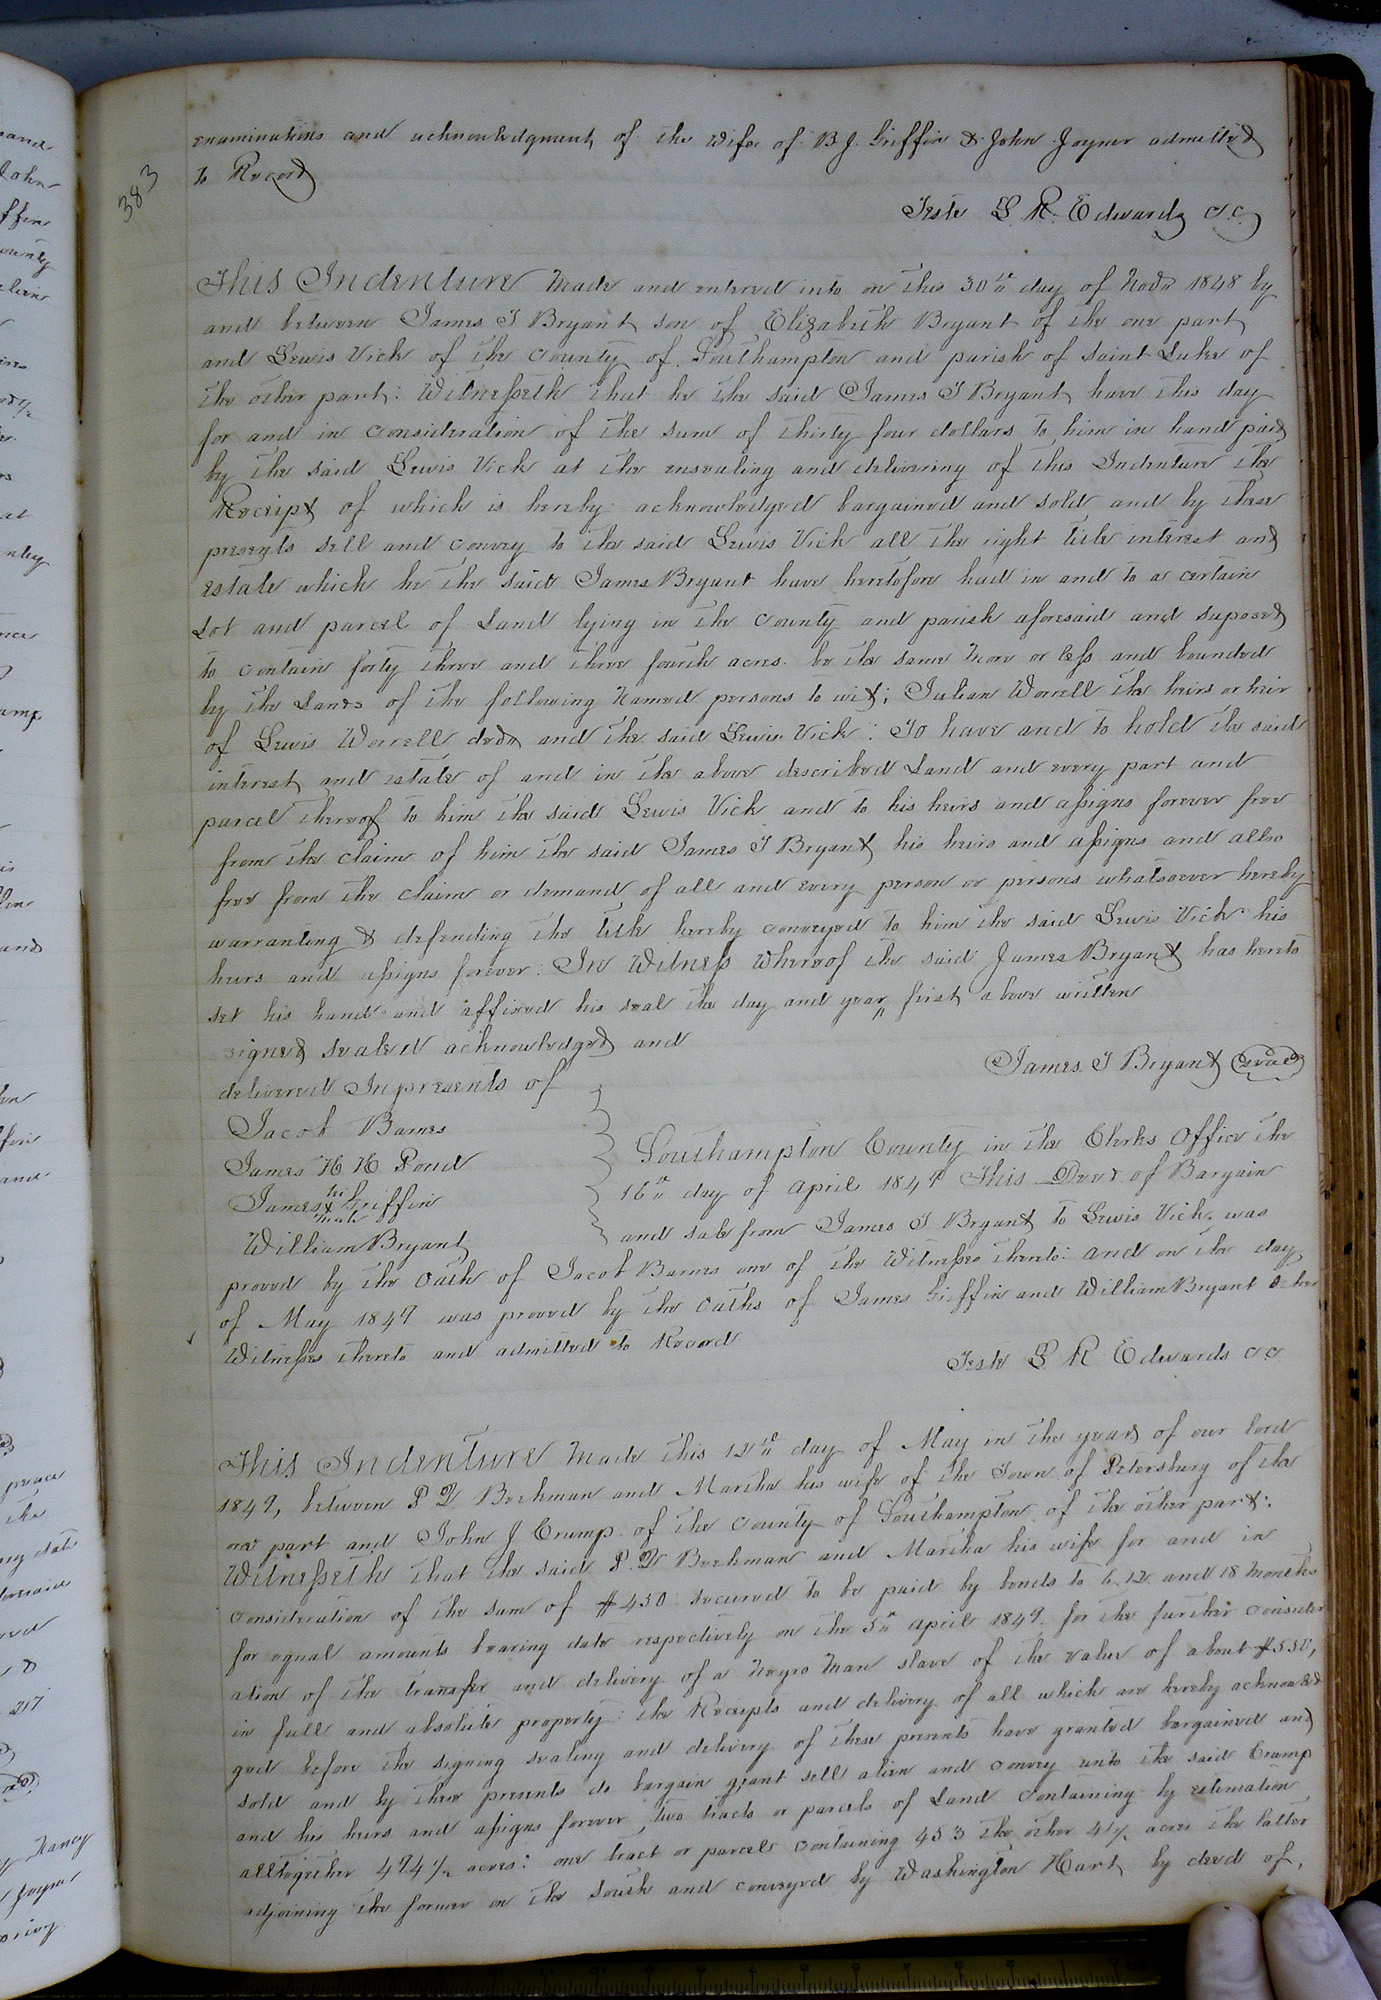 383
examinations and acknowledgment of the wife of B J. Griffin & John Joyner admitted
to Record
Teste L. R. Edwards c.c.
This Indenture Made and entered into on this 30th day of Novr 1848 by
and between James T Bryant son of Elizabeth Bryant of the one part
and Lewis Vick of the County of Southampton and parish of Saint Luke of
the other part: Witnesseth that he the said James T Bryant have this day
for and in consideration of the sum of thirty four dollars to him in hand paid
by the said Lewis Vick at the ensealing and delivering of this Indenture the
Receipt of which is hereby acknowledged bargained and sold and by these
presents sell and convey to the said Lewis Vick all the right title interest and
estate which he the said James Bryant have heretofore had in and to a certain
Lot and parcel of Land lying in the County and parish aforesaid and suposed
to contain forty three and three fourth acres. be the same more or less and bounded
by the Lands of the following Named persons to wit; Julian Worrell the heirs or heir
of Lewis Worrell decd and the said Lewis Vick: To have and to hold the said
interest and estate of and in the above described Land and every part and
parcel thereof to him the said Lewis Vick and to his heirs and assigns forever free
from the claim of him the said James T Bryant his heirs and assigns and allso
free from the claim or demand of all and every person or persons whatsoever hereby
warranting & defending the title hereby conveyed to him the said Lewis Vick his
heirs and assigns forever: In Witness Whereof the said James Bryant has hereto
set his hand and affixed his seal the day and year, first above written
signed sealed acknowledged and
James. T Bryant seal
delivered In presents of
Jacob Barnes
James H H Pond
James his x mark Griffin
William Bryant
Southampton County in the Clerks Office the
16th day of April 1849 This Deed of Bargain
and sale from James T Bryant to Lewis Vick. was
proved by the Oath of Jacob Barnes one of the Witnesses thereto: and on the day
of May 1849 was proved by the oaths of James Griffin and William Bryant other
Witnesses thereto and admitted to Record
Teste L R Edwards cc
This Indenture Made this 12th day of May in the year of our lord
1849, between P D Beekman and Martha his wife of the Town of Petersburg of the
one part and John J Crump of the County of Southampton of the other part:
Witnesseth that the said P. D Beekman and Martha his wife for and in
consideration of the sum of $450 secured to be paid by bonds to 6. 12. and 18 Months
for equal amounts bearing date respectively on the 5th April 1849. for the further consider
ation of the transfer and delivery of a Negro Man slave of the value of about $550,
in full and absolute property: the Receipts and delivery of all which are hereby acknowled
ged before the signing sealing and delivery of these presents have granted bargained and
sold and by these presents do bargain grant sell alien and convey unto the said Crump
and his heirs and assigns forever two tracts or parcels of Land containing by estimation
alltogether 494½ acres: one tract or parcel containing 453 the other 41½ acres the latter
adjoining the former on the South and conveyed by Washington Hart by deed of.